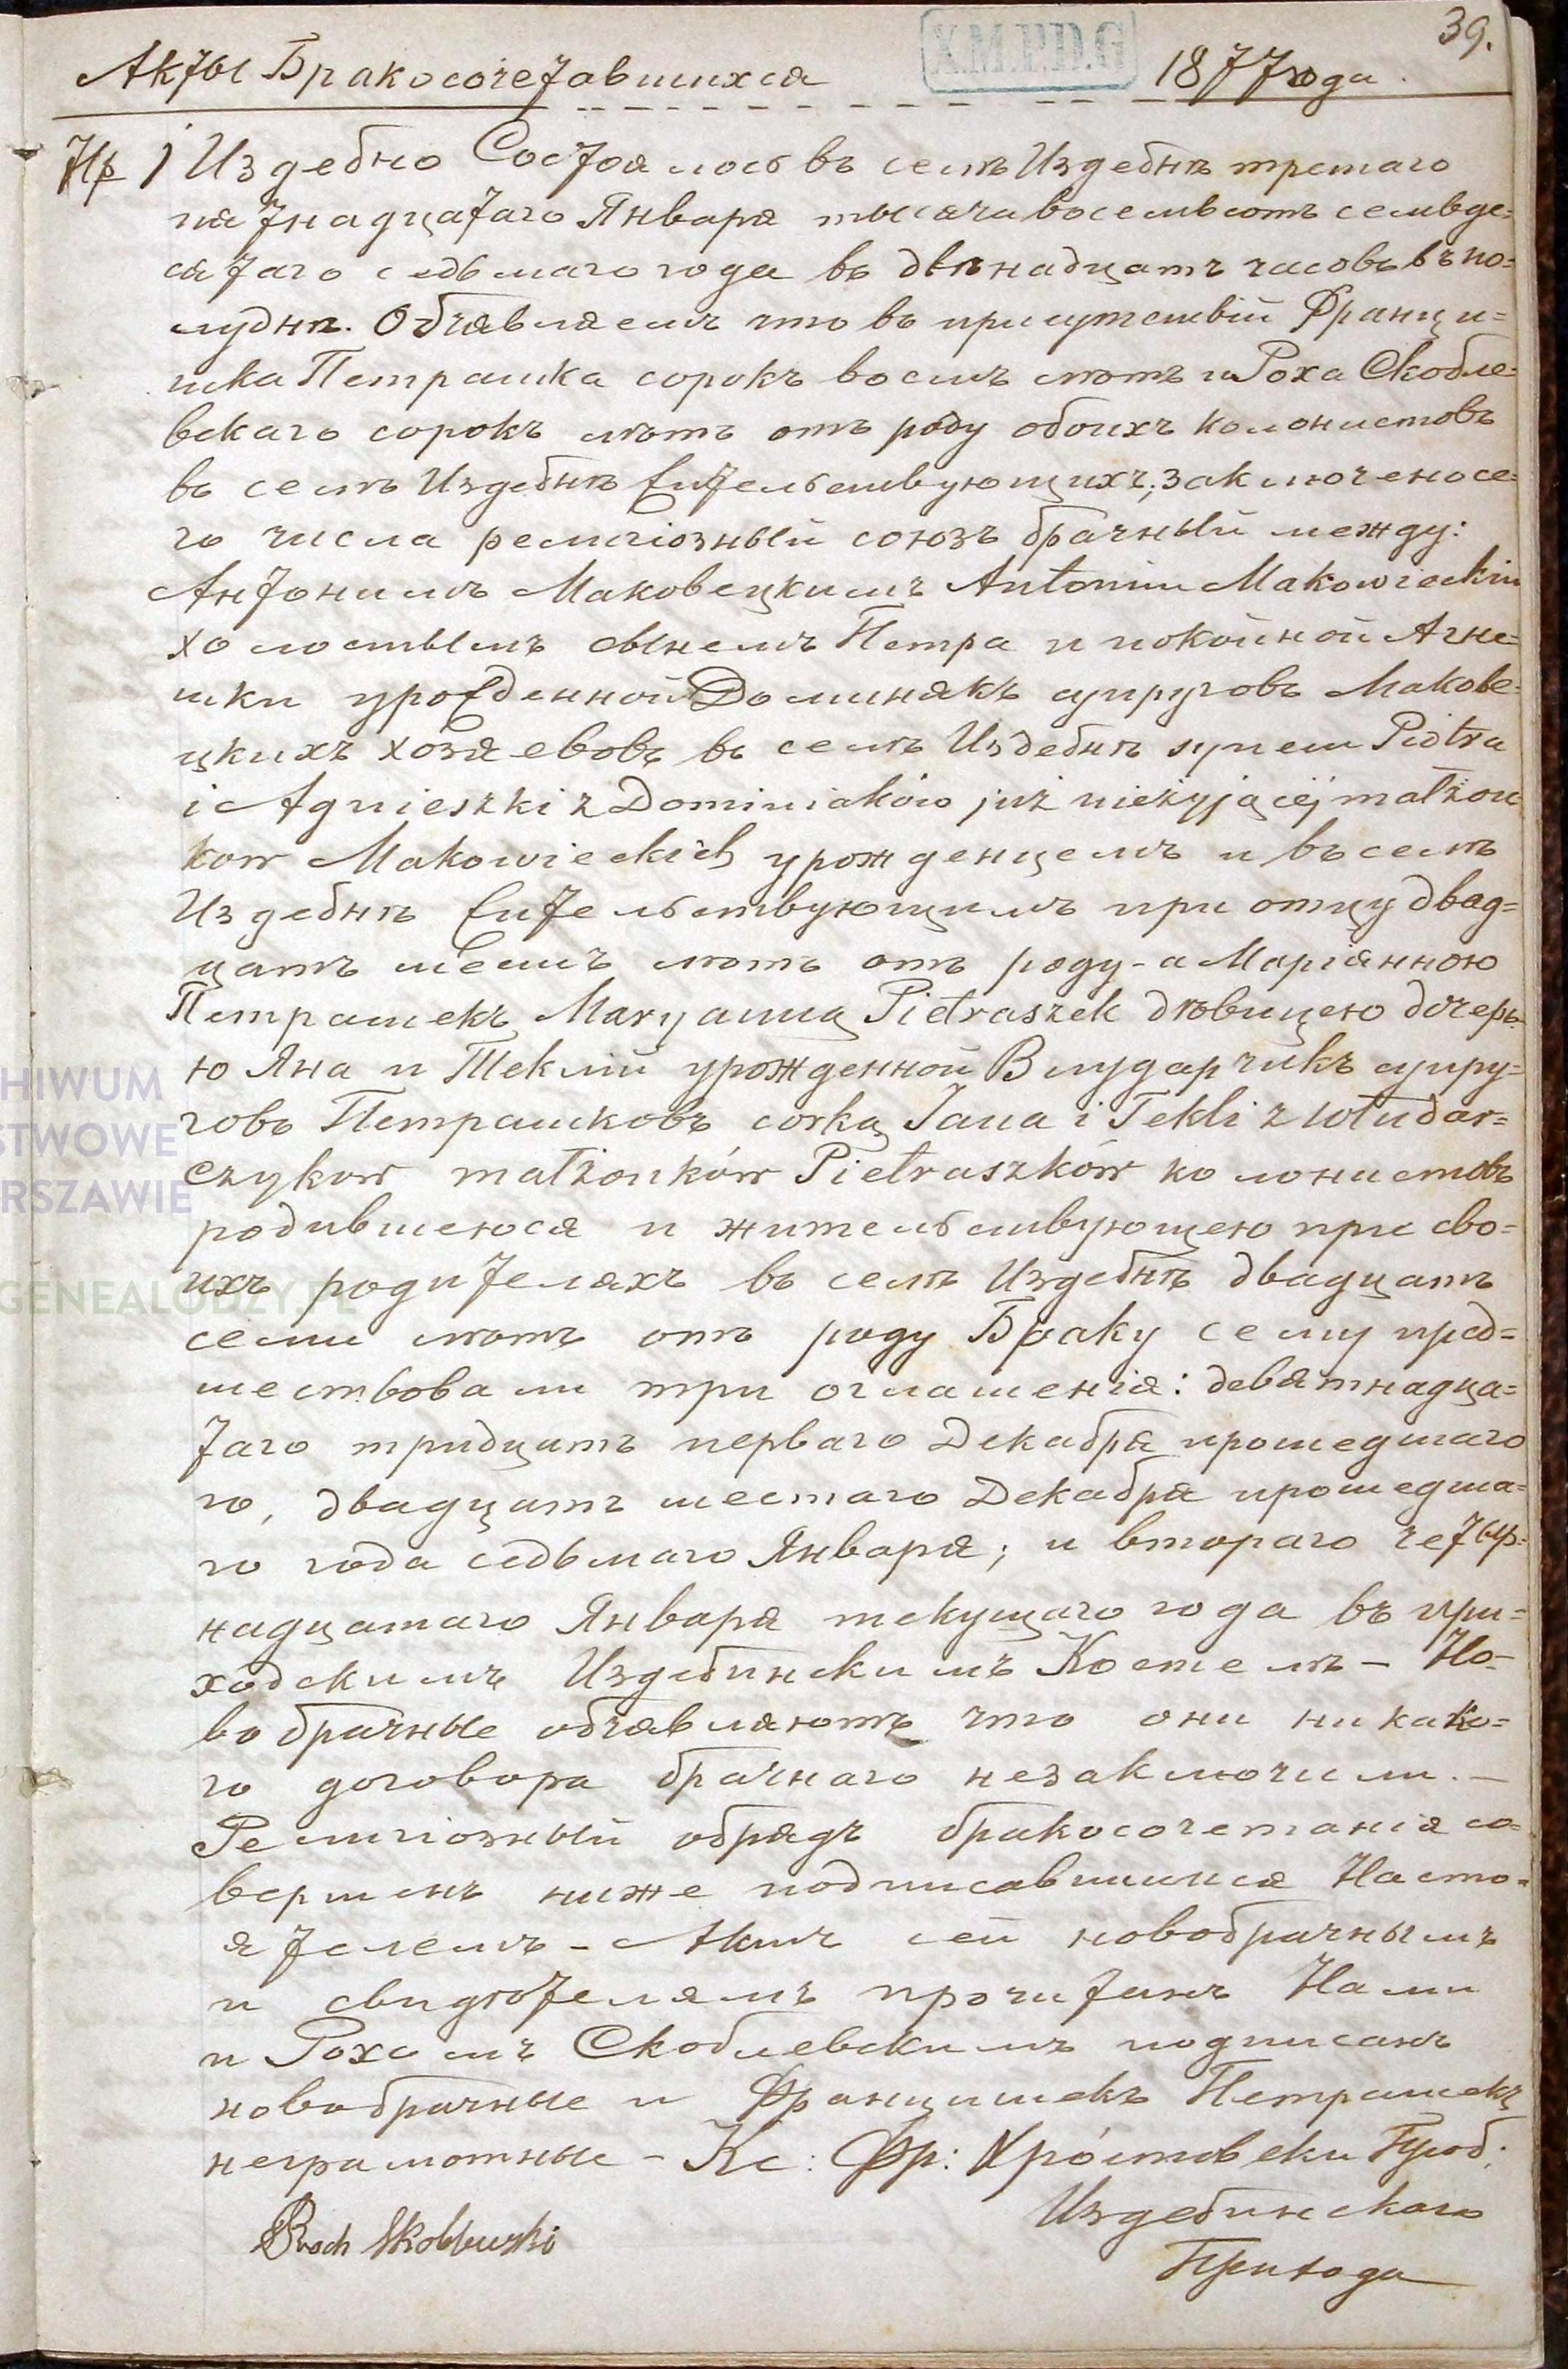 39.
Х.М.P.D.G
Акты Бракосочетавшихся 1877 года.
Нр 1 Издебно Состоялось въ селѣ Издебнѣ третаго
пятнадцатаго Января тысяча восемьсотъ семьде=
сятаго седьмаго года въ двѣнадцать часовъ въ по=
лудни. Объявляемъ что въ присутствій Франци=
шка Петрашка сорокъ восмъ лѣтъ и Роха Скобле=
вскаго сорокъ лѣтъ отъ роду обоихъ колонистовъ
въ селѣ Издебнѣ жительствующихъ, заключено се=
го числа религіозный союзъ брачный между:
Антонимъ Маковецкимъ Antonim Makowieckim
холостымъ сынемъ Петра и покойной Агне=
шки урожденной Доминякъ супруговъ Макове=
цкихъ хозяевовъ въ селѣ Издебнѣ synem Piotra
i Agnieszki z Dominiaków już nieżyjącéj małżon
kow Makowieckich урожденцемъ и въ селѣ
Издебнѣ жительствующимъ при отцу двад=
цать шемъ лѣтъ отъ роду - а Маріянною
Петрашекъ Maryanną Pietraszek дѣвицею дочерь=
ю Яна и Теклій урожденной Влударчикъ супру=
говъ Петрашковъ corką Jana i Tekli z Włudar=
czykow małżonków Pietraszków колонистовъ
родившеюся и жительствующею при сво=
ихъ родителяхъ въ селѣ Издебнѣ двадцать
семи лѣтъ отъ роду Браку сему пред=
шествовали три оглашенія: девятнадца=
таго тридцать перваго Декабря прошедшаго
го, двадцать шестаго Декабря прошедша=
го года седьмаго Января; и втораго четыр=
надцатаго Января текущаго года въ при=
ходскимъ Издебинскимъ Костелѣ - Но=
вобрачные объявляютъ что они никако=
го договора брачнаго незаключили. -
Религіозный обрядъ бракосочетанія со=
вершенъ ниже подписавшимся Насто=
ятелемъ - Актъ сей новобрачнымъ
и свидѣтелямъ прочитанъ Нами
и Рохомъ Скоблевскимъ подписанъ
новобрачные и Францишекъ Петрашекъ
неграмотные - Кс: Фр: Хростовски Проб:
Издебинскаго
Прихода
Roch Skoblewski
HIWUM
STWOWE
RSZAWIE
GENEALODZY.PL